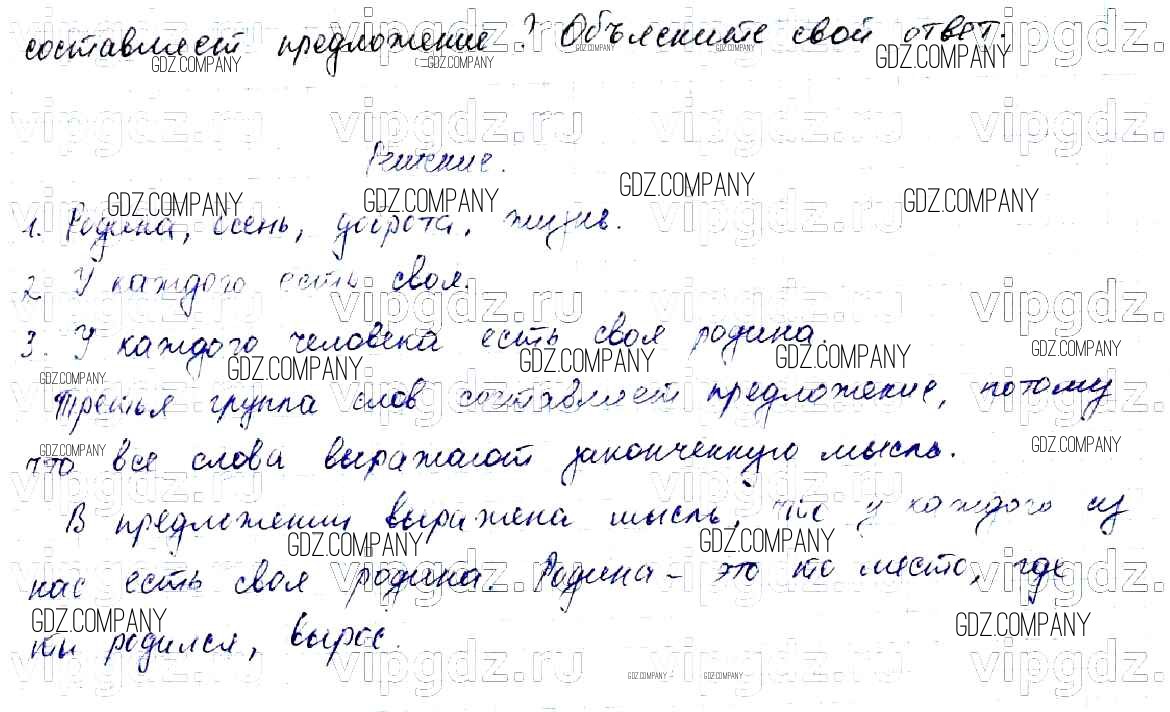 составляет предложение? Объясните свой ответ.
Решение.
1. Родина, осень, доброта, жизнь.
2. У каждого есть своя.
3. У каждого человека есть своя родина.
Третья группа слов составляет предложение, потому
что все слова выражают законченную мысль.
В предложении выражена мысль, что у каждого из
нас есть своя родина. Родина - это то место, где
ты родился, вырос.
vipgdz.ru
GDZ.COMPANY